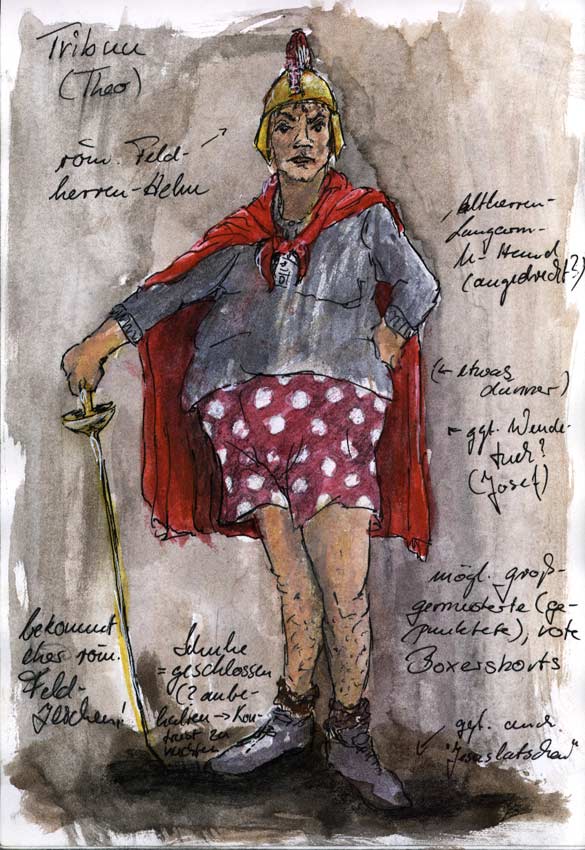 Tribun
(Theo)
röm. Feld-
herren-Helm
Altherren-
Langarm-
U-Hemd
(angedreckt?)
(← etwas
dünner)
← ggf. Wende-
tuch?
(Josef)
mögl. groß-
gemusterte (ge-
punktete), rote
Boxershorts
bekommt
eher röm.
Feld-
zeichen!
Schuhe
= geschlossen
(? anbe-
halten → Kon-
trast zu
nackten
ggf. auch
"Jesuslatschen"